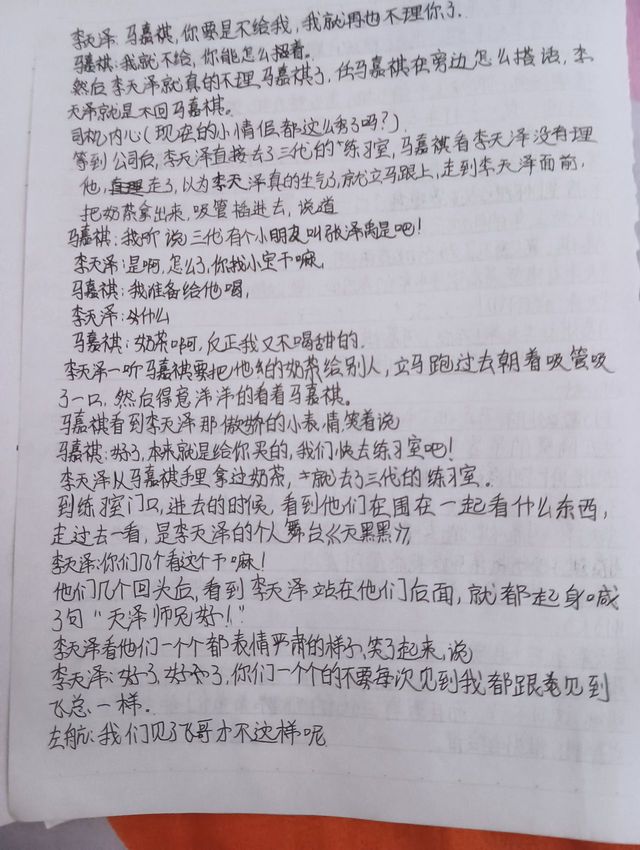 李天泽:马嘉祺,你要是不给我,我就再也不理你了.
马嘉祺:我就不给,你能怎么招着.
然后李天泽就真的不理马嘉祺了,任马嘉祺在旁边怎么搭话,李
天泽就是不回马嘉祺。
司机内心(现在的小情侣都这么秀了吗?)
等到公司后,李天泽直接去了三代的练习室,马嘉祺看李天泽没有理
他,走了,以为李天泽真的生气了,就立马跟上,走到李天泽面前,
把奶茶拿出来,吸管插进去,说道
马嘉祺:我听说三代有个小朋友叫张泽禹是吧!
李天泽:是啊,怎么了,你找小宝干嘛,
马嘉祺:我准备给他喝,
李天泽:什么
马嘉祺:奶茶啊,反正我又不喝甜的.
李天泽一听马嘉祺要把他的奶茶给别人,立马跑过去朝着吸管吸
了一口,然后得意洋洋的看着马嘉祺。
马嘉祺看到李天泽那傲娇的小表情,笑着说
马嘉祺:好了,本来就是给你买的,我们快去练习室吧!
李天泽从马嘉祺手里拿过奶茶,就去了三代的练习室.
到练习室门口,进去的时候,看到他们在围在一起看什么东西,
走过去一看,是李天泽的个人舞台《天黑黑》,
李天泽:你们几个看这个干嘛!
他们几个回头后,看到李天泽站在他们后面,就都起身喊
了句“天泽师兄好!”
李天泽看他们一个个都表情严肃的样子,笑了起来,说
李天泽:好了,好了,你们一个个的不要每次见到我,都跟见到
飞总一样.
左航:我们见了飞哥才不这样呢